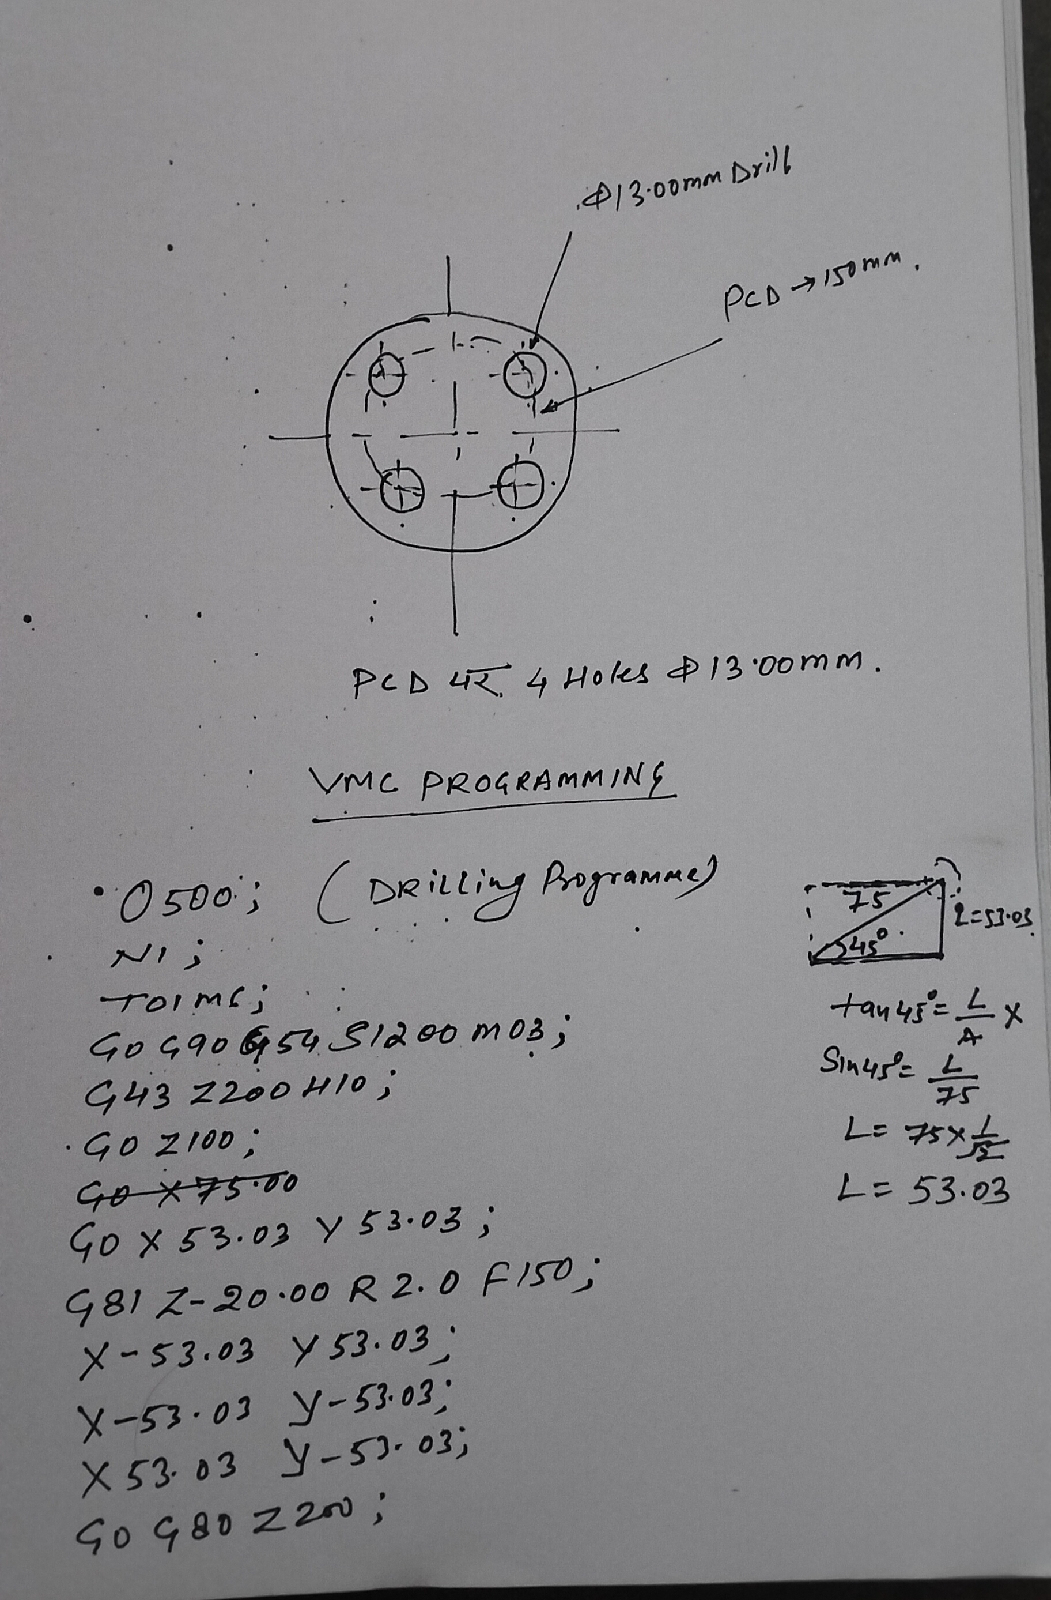 Φ13.00mm Drill
PCD → 150mm.
PCD पर 4 Holes Φ 13.00mm.
VMC PROGRAMMING
O500; (DRilling Programme)
N1;
T01 M6;
G0 G90 G54 S1200 M03;
G43 Z200 H10;
G0 Z100;
G0 X75.00
G0 X 53.03 Y 53.03;
G81 Z-20.00 R 2.0 F150;
X-53.03 Y 53.03;
X-53.03 Y-53.03;
X 53.03 Y-53.03;
G0 G80 Z200;
75
L=53.03
45°
tan 45° = L/A X
Sin 45° = L/75
L = 75 X 1/√2
L = 53.03